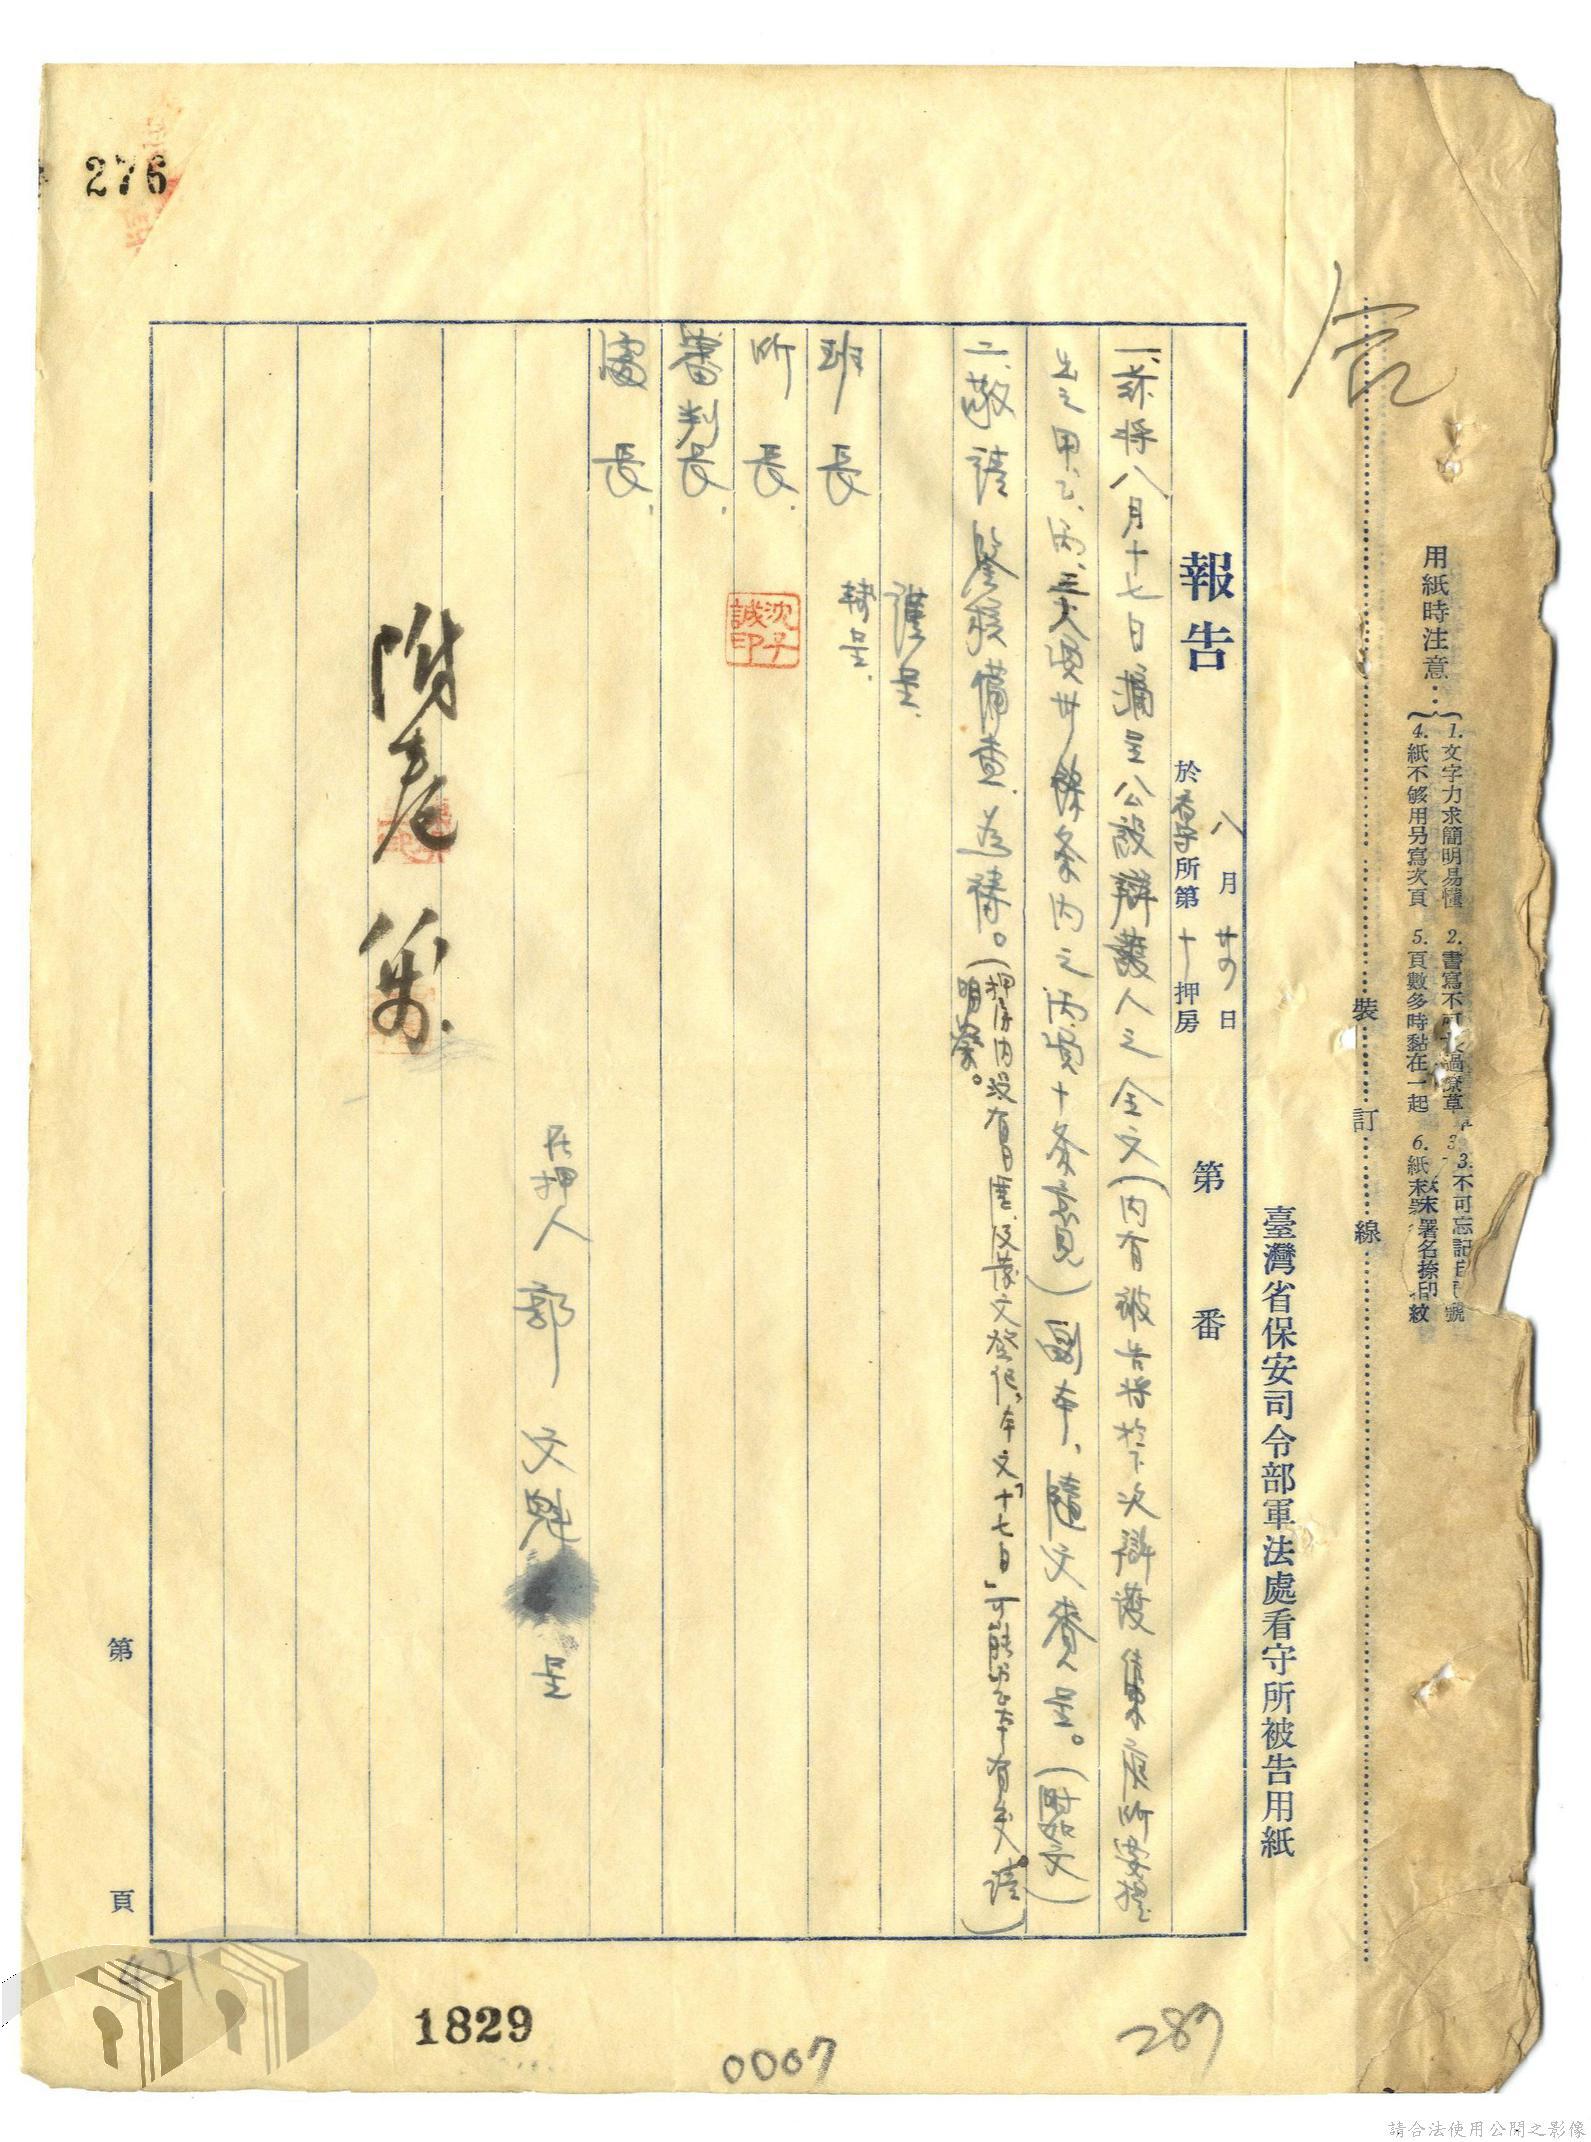 用紙時注意：
1.文字力求簡明易懂 2.書寫不可太過潦草 3.不可忘記日期號
4.紙不够用另寫次頁 5.頁數多時黏在一起 6.紙末署名捺印紋
裝訂線
臺灣省保安司令部軍法處看守所被告用紙
報告 八月廿四日 於看守所第十押房 第 番
一、茲將八月十七日摘呈公設辯護人之全文(內有被告將於下次辯護庭所要提
出之甲、乙、丙、三大項廿餘条內之丙項十条意見)副本、隨文賫呈。(附如文)
二、敬請鑒核備查為禱。(押房內沒有日曆及發文登記,本文「十七日」可能與正本有交。請
明察。)
謹呈.
班長 轉呈.
所長.
沈子誠印
審判長.
處長.
在押人 郭文魁 呈
附卷
276
第 頁
1829
0007
287
請合法使用公開之影像